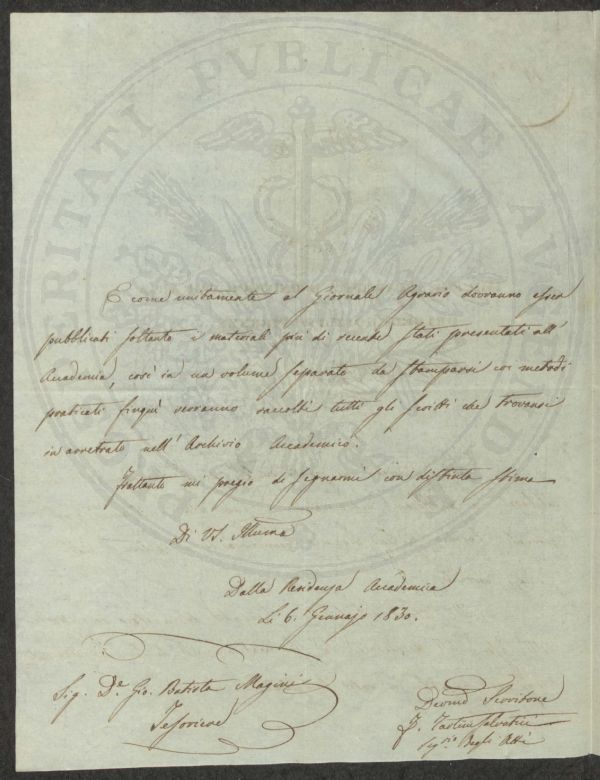 E come unitamente al Giornale Agrario dovranno esser
pubblicati soltanto i materiali più di recente stati presentati all'
Accademia, così in un volume separato da stamparsi coi metodi
praticati finquì verranno raccolti tutti gli Scritti che trovansi
in arretrato nell'Archivio Accademico.
Frattanto mi pregio di segnarmi con distinta stima
Di VS. Illma
Dalla Residenza Accademica
Li 6. Gennajo 1830.
Sig. Dre. Gio. Batista Magini
Tesoriere
Devmo Servitore
F. Tartini Salvatici
Segrio Degli Atti
PROSPERITATI PVBLICAE AVGENDAE